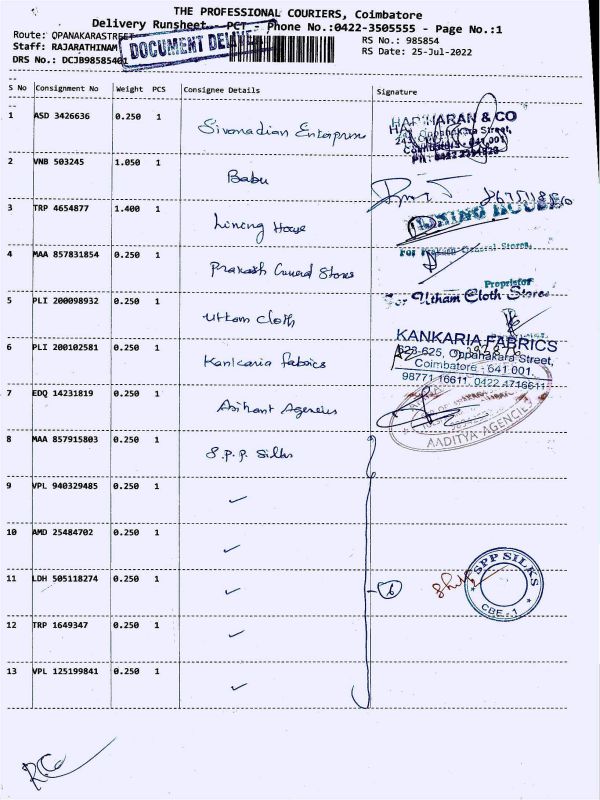 THE PROFESSIONAL COURIERS, Coimbatore
Delivery Runsheet - PCT - Phone No.:0422-3505555 - Page No.:1
Route: OPANAKARASTREET
RS No.: 985854
Staff: RAJARATHINAM
RS Date: 25-Jul-2022
DRS No.: DCJB98585401
DOCUMENT DELIVE
S No Consignment No Weight PCS Consignee Details Signature
1 ASD 3426636 0.250 1 Sivanadian Enterprises
HARIHARAN & CO
Oppanakara Street,
Coimbatore - 641 001
2 VNB 503245 1.050 1 Babu
3 TRP 4654877 1.400 1 Lining House
LINING HOUSE
4 MAA 857831854 0.250 1 Prakash General Stores
For Prakash General Stores,
Proprietor
5 PLI 200098932 0.250 1 Uttam Cloth
For Utham Cloth Stores
6 PLI 200102581 0.250 1 Kankaria fabrics
KANKARIA FABRICS
623-625, Oppanakara Street,
Coimbatore - 641 001.
98771 16611, 0422 4716611
7 EDQ 14231819 0.250 1 Arihant Agencies
AADITYA AGENCIES
8 MAA 857915803 0.250 1 S.P.P. Silks
9 VPL 940329485 0.250 1
10 AMD 25484702 0.250 1
11 LDH 505118274 0.250 1
6
SPP SILKS
CBE - 1
12 TRP 1649347 0.250 1
13 VPL 125199841 0.250 1